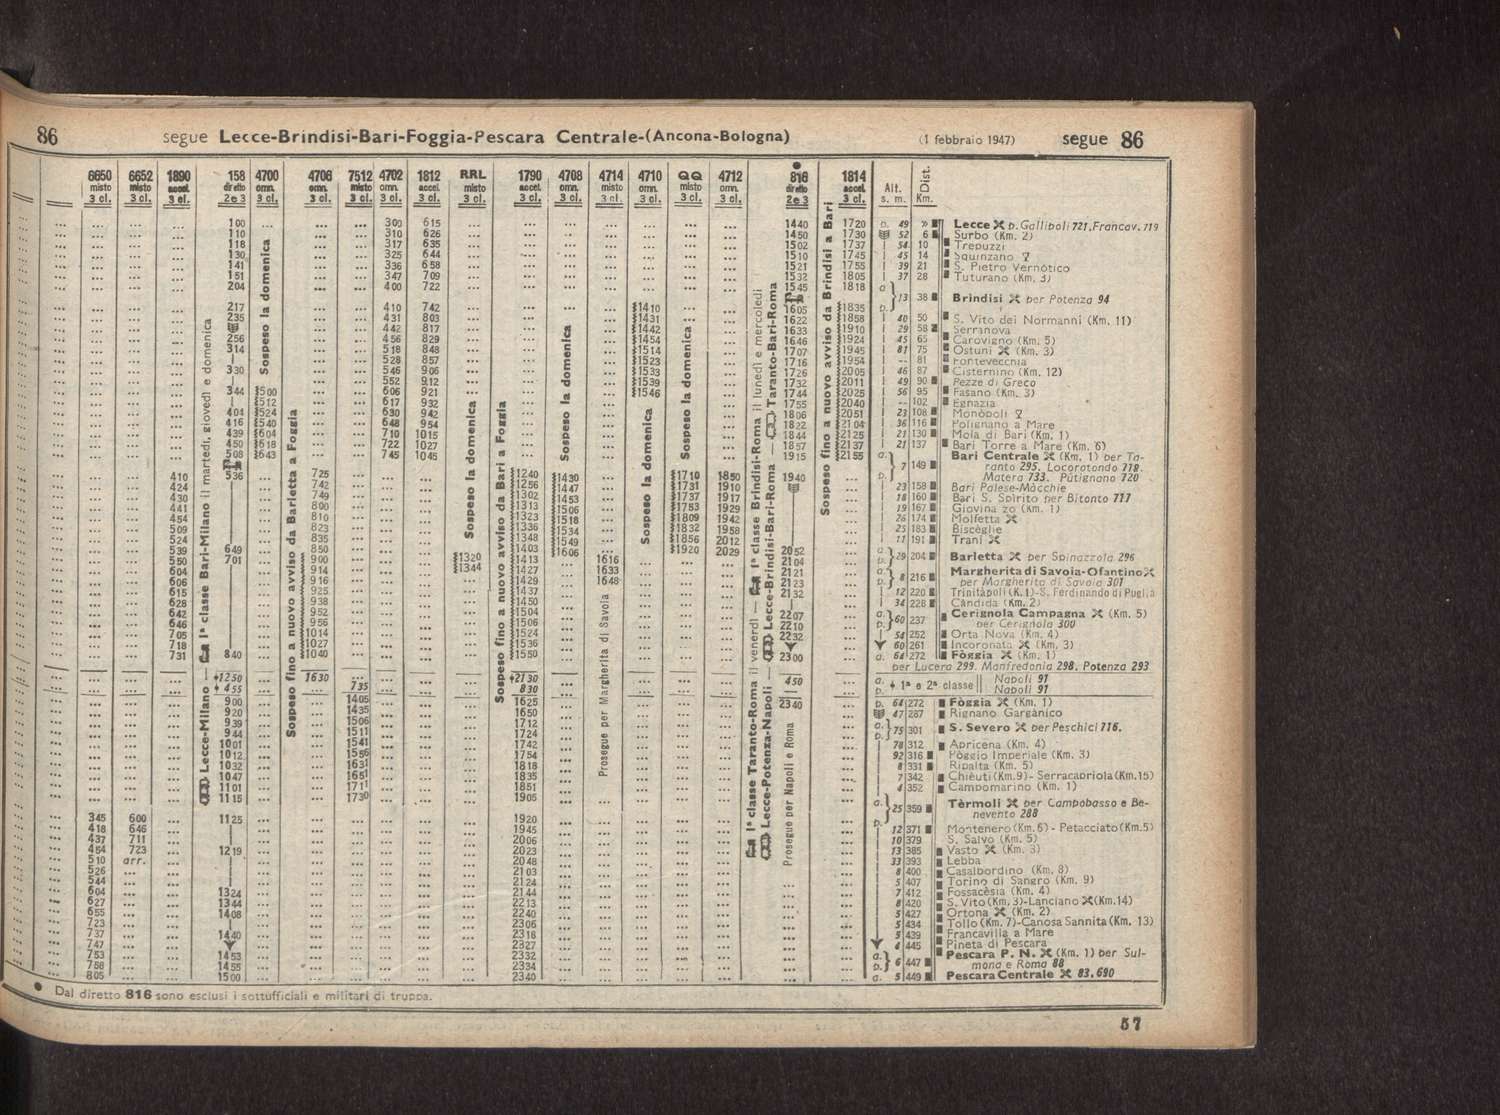 86 segue Lecce-Brindisi-Bari-Foggia-Pescara Centrale-(Ancona-Bologna) (1 febbraio 1947) segue 86
6650 6652 1890 158 4700 4706 7512 4702 1812 RRL 1790 4708 4714 4710 QQ 4712 816 1814 Alt. Dist.
misto misto accel. diretto omn. omn. misto omn. accel. misto accel. omn. misto omn. misto omn. diretto accel. s. m. Km.
3 cl. 3 cl. 3 cl. 2 e 3 3 cl. 3 cl. 3 cl. 3 cl. 3 cl. 3 cl. 3 cl. 3 cl. 3 cl. 3 cl. 3 cl. 3 cl. 2 e 3 3 cl.
100 300 615 1440 1720 p. 49 » Lecce p. Gallipoli 721, Francav. 719
110 310 626 1450 1730 52 6 Surbo (Km. 2)
118 317 635 1502 1737 54 10 Trepuzzi
130 325 644 1510 1745 45 14 Squinzano
141 336 658 1521 1755 39 21 S. Pietro Vernòtico
151 347 709 1532 1805 37 28 Tuturano (Km. 3)
204 400 722 1545 1818 a.
13 38 Brindisi per Potenza 94
217 410 742 1410 1605 1835 p.
235 431 803 1431 1622 1858 40 50 S. Vito dei Normanni (Km. 11)
442 817 1442 1633 1910 29 58 Serranova
256 456 829 1454 1646 1924 45 65 Carovigno (Km. 5)
314 518 848 1514 1707 1945 81 75 Ostuni (Km. 3)
528 857 1523 1716 1954 -- 81 Fontevecchia
330 546 906 1533 1726 2005 46 87 Cisternino (Km. 12)
552 912 1539 1732 2011 49 90 Pezze di Greco
344 500 606 921 1546 1744 2025 56 95 Fasano (Km. 3)
512 617 932 1755 2040 -- 102 Egnazia
404 524 630 942 1806 2051 23 108 Monòpoli
416 540 648 954 1822 2104 36 116 Polignano a Mare
439 604 710 1015 1844 2125 21 130 Mola di Bari (Km. 1)
450 618 722 1027 1857 2137 21 137 Bari Torre a Mare (Km. 6)
508 643 745 1045 1915 2155 a. Bari Centrale (Km. 1) per Ta-
7 149 ranto 295. Locorotondo 718.
410 536 725 1240 1430 1710 1850 1940 p. Matera 733. Putignano 720
424 742 1256 1447 1731 1910 23 158 Bari Palese-Màcchie
430 749 1302 1453 1737 1917 18 160 Bari S. Spirito per Bitonto 717
441 800 1313 1506 1753 1929 19 167 Giovinazzo (Km. 1)
454 810 1323 1518 1809 1942 26 174 Molfetta
509 823 1336 1534 1832 1958 25 183 Biscèglie
524 835 1348 1549 1856 2012 11 191 Trani
539 649 850 1403 1606 1920 2029 2052 a.
550 701 900 1320 1413 1616 2104 p. 29 204 Barletta per Spinazzola 296
604 914 1344 1427 1633 2121 a. Margherita di Savoia-Ofantino
606 916 1429 1648 2123 p. 8 216 per Margherita di Savoia 301
615 925 1437 2132 12 220 Trinitàpoli (K.1)-S. Ferdinando di Puglia
628 938 1450 34 228 Càndida (Km. 2)
642 952 1504 2207 a. Cerignola Campagna (Km. 5)
646 956 1506 2210 p. 60 237 per Cerignola 300
705 1014 1524 2232 54 252 Orta Nova (Km. 4)
718 1027 1536 60 261 Incoronata (Km. 3)
731 840 1040 1550 2300 a. 64 272 Fòggia (Km. 1)
per Lucera 299. Manfredonia 298. Potenza 293
1250 1630 2130 450 a. 1ª e 2ª classe Napoli 91
455 735 830 p. Napoli 91
900 1405 1625 2340 p. 64 272 Fòggia (Km. 1)
920 1435 1650 47 287 Rignano Gargànico
939 1506 1712 a.
944 1511 1724 p. 75 301 S. Severo per Peschici 716.
1001 1541 1742 78 312 Apricena (Km. 4)
1012 1556 1754 92 316 Pòggio Imperiale (Km. 3)
1032 1631 1818 8 331 Ripalta (Km. 5)
1047 1651 1835 7 342 Chièuti (Km.9)- Serracapriola (Km.15)
1101 1711 1851 4 352 Campomarino (Km. 1)
1115 1730 1905 a. Tèrmoli per Campobasso e Be-
25 359 nevento 288
345 600 1125 1920 p.
418 646 1945 12 371 Montenero (Km. 6) - Petacciato (Km.5)
437 711 2006 10 379 S. Salvo (Km. 5)
454 723 1219 2023 13 385 Vasto (Km. 3)
510 arr. 2048 33 393 Lebba
526 2103 8 400 Casalbordino (Km. 8)
544 2124 5 407 Torino di Sangro (Km. 9)
604 1324 2144 7 412 Fossacèsia (Km. 4)
627 1344 2213 8 420 S. Vito (Km. 3)-Lanciano (Km.14)
655 1408 2240 5 427 Ortona (Km. 2)
723 2306 5 434 Tollo (Km. 7)-Canosa Sannita (Km. 13)
737 1440 2318 5 439 Francavilla a Mare
747 2327 4 445 Pineta di Pescara
753 1453 2332 a. Pescara P. N. (Km. 1) per Sul-
758 1455 2334 p. 6 447 mona e Roma 88
805 1500 2340 a. 5 449 Pescara Centrale 83, 690
Lecce-Milano — 1ª classe Bari-Milano il martedì, giovedì e domenica
Sospeso la domenica
Sospeso fino a nuovo avviso da Barletta a Foggia
Sospeso la domenica
Sospeso fino a nuovo avviso da Bari a Foggia
Sospeso la domenica
Prosegue per Margherita di Savoia
Sospeso la domenica
Sospeso la domenica
1ª classe Taranto-Roma il venerdì — 1ª classe Brindisi-Roma il lunedì e mercoledì
Lecce-Potenza-Napoli — Lecce-Brindisi-Bari-Roma — Taranto-Bari-Roma
Prosegue per Napoli e Roma
Sospeso fino a nuovo avviso da Brindisi a Bari
● Dal diretto 816 sono esclusi i sottufficiali e militari di truppa.
57